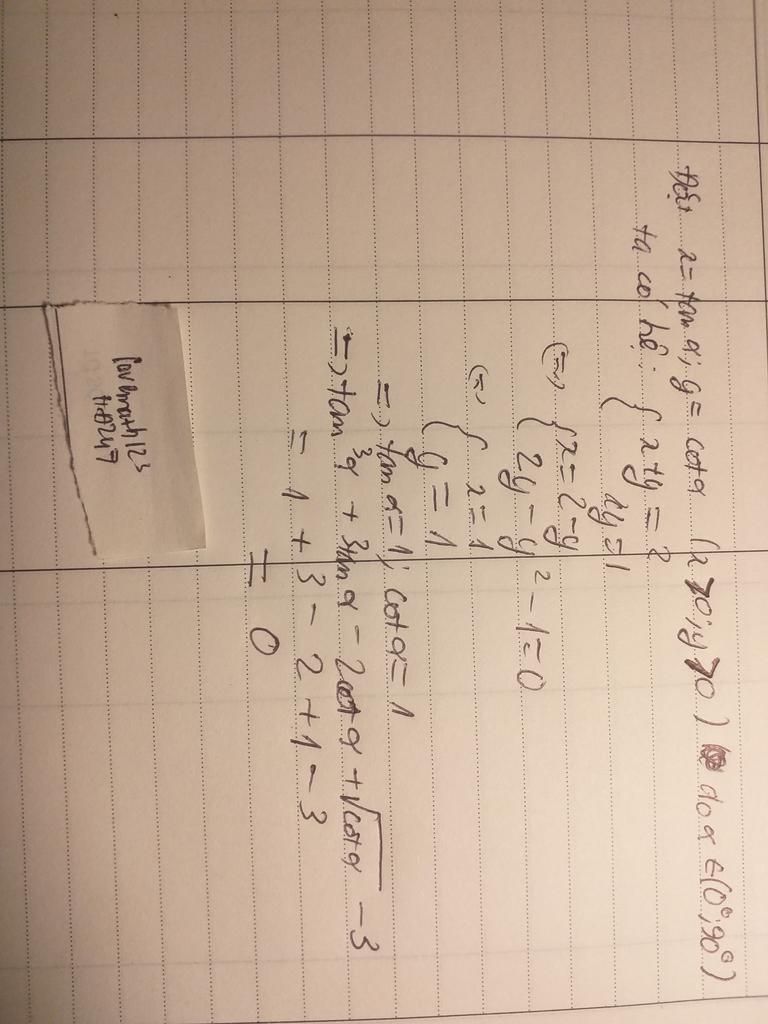 Đặt x = tan α; y = cot α (x > 0; y > 0) do α ∈ (0°; 90°)
ta có hệ: { x + y = 2
xy = 1
(=) { x = 2 - y
2y - y² - 1 = 0
(=) { x = 1
y = 1
=> tan α = 1; cot α = 1
=> tan³α + 3tan α - 2cot α + √cot α - 3
= 1 + 3 - 2 + 1 - 3
= 0